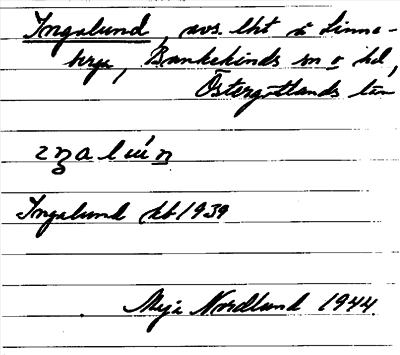 Ingalund, avs. lht å Linne-
berga, Bankekinds sn o hd,
Östergötlands län
Ingalund kb 1939
Maja Nordlund 1944.